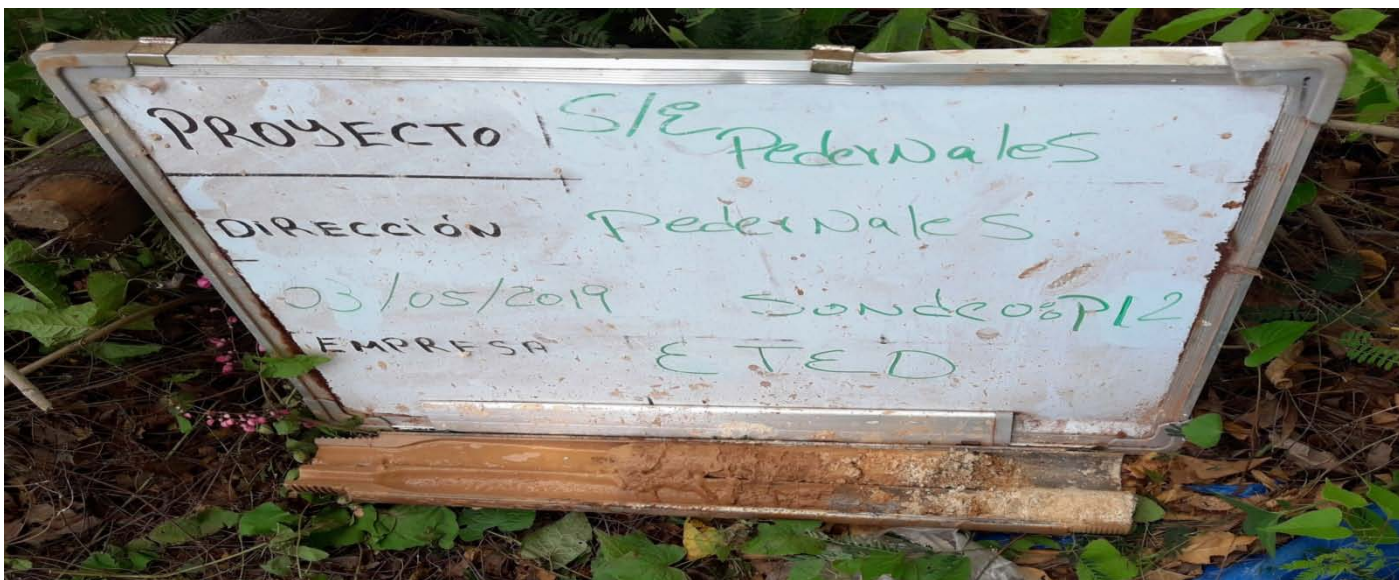 PROYECTO S/E PederNaleS
DIRECCIÓN PederNaleS
03/05/2019 SoNdeo: P12
EMPRESA ETED